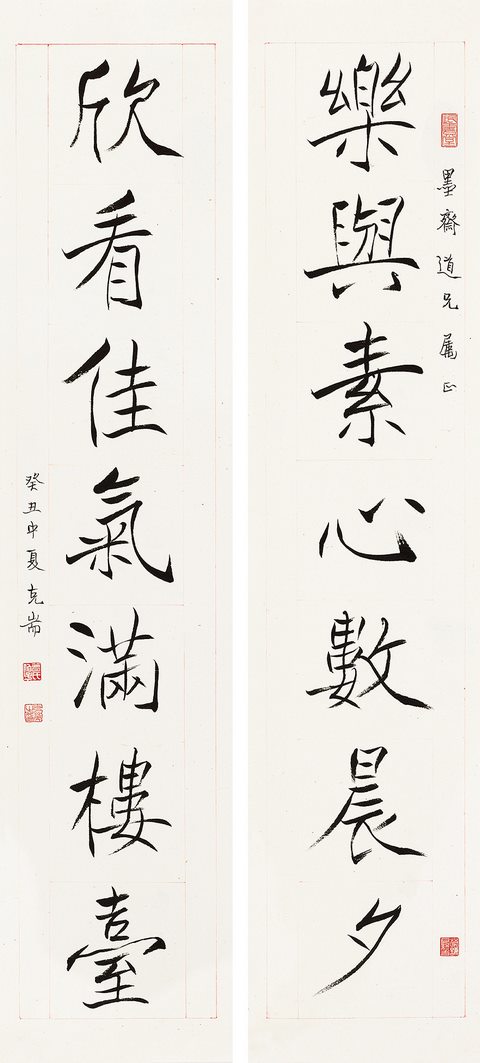 墨齋道兄 属正
樂與素心數晨夕
欣看佳氣滿樓臺
癸丑中夏克耑